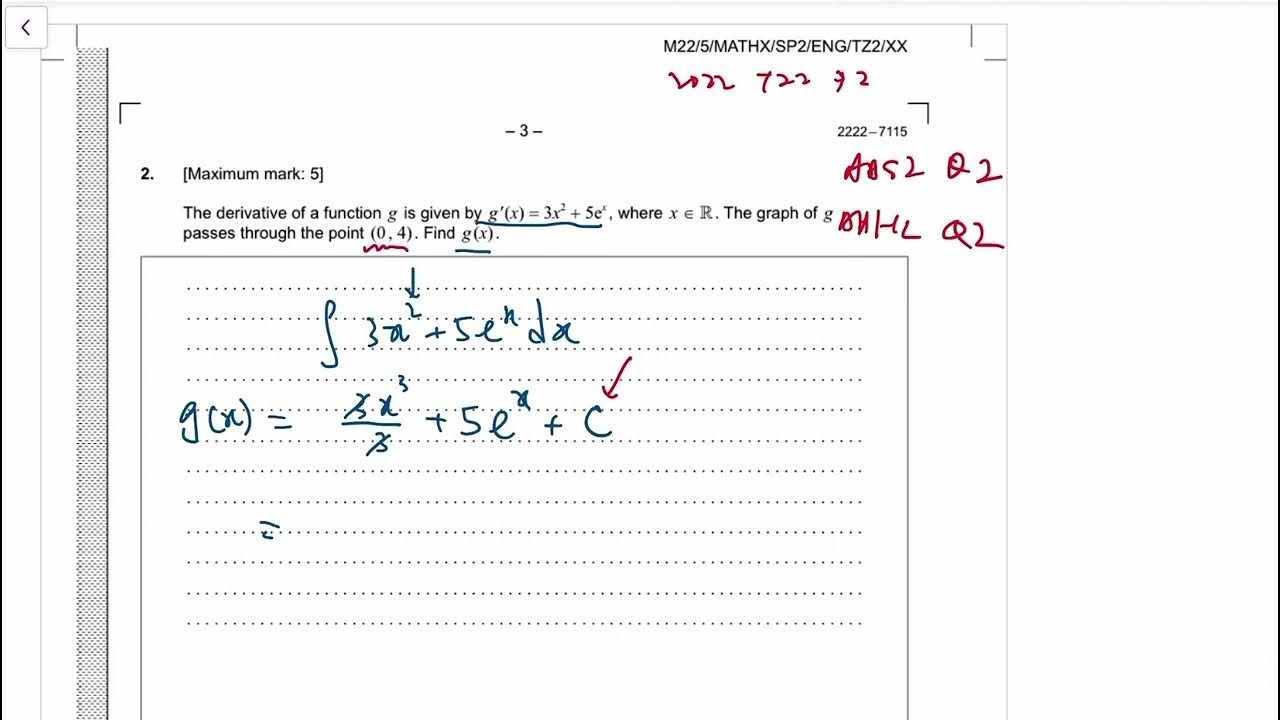 M22/5/MATHX/SP2/ENG/TZ2/XX
2022 TZ2 P2
– 3 –
2222–7115
2. [Maximum mark: 5]
AASL Q2
The derivative of a function g is given by g′(x) = 3x² + 5eˣ, where x ∈ ℝ. The graph of g
passes through the point (0, 4). Find g(x).
AAHL Q2
∫ 3x² + 5eˣ dx
g(x) = 3x³/3 + 5eˣ + C
=